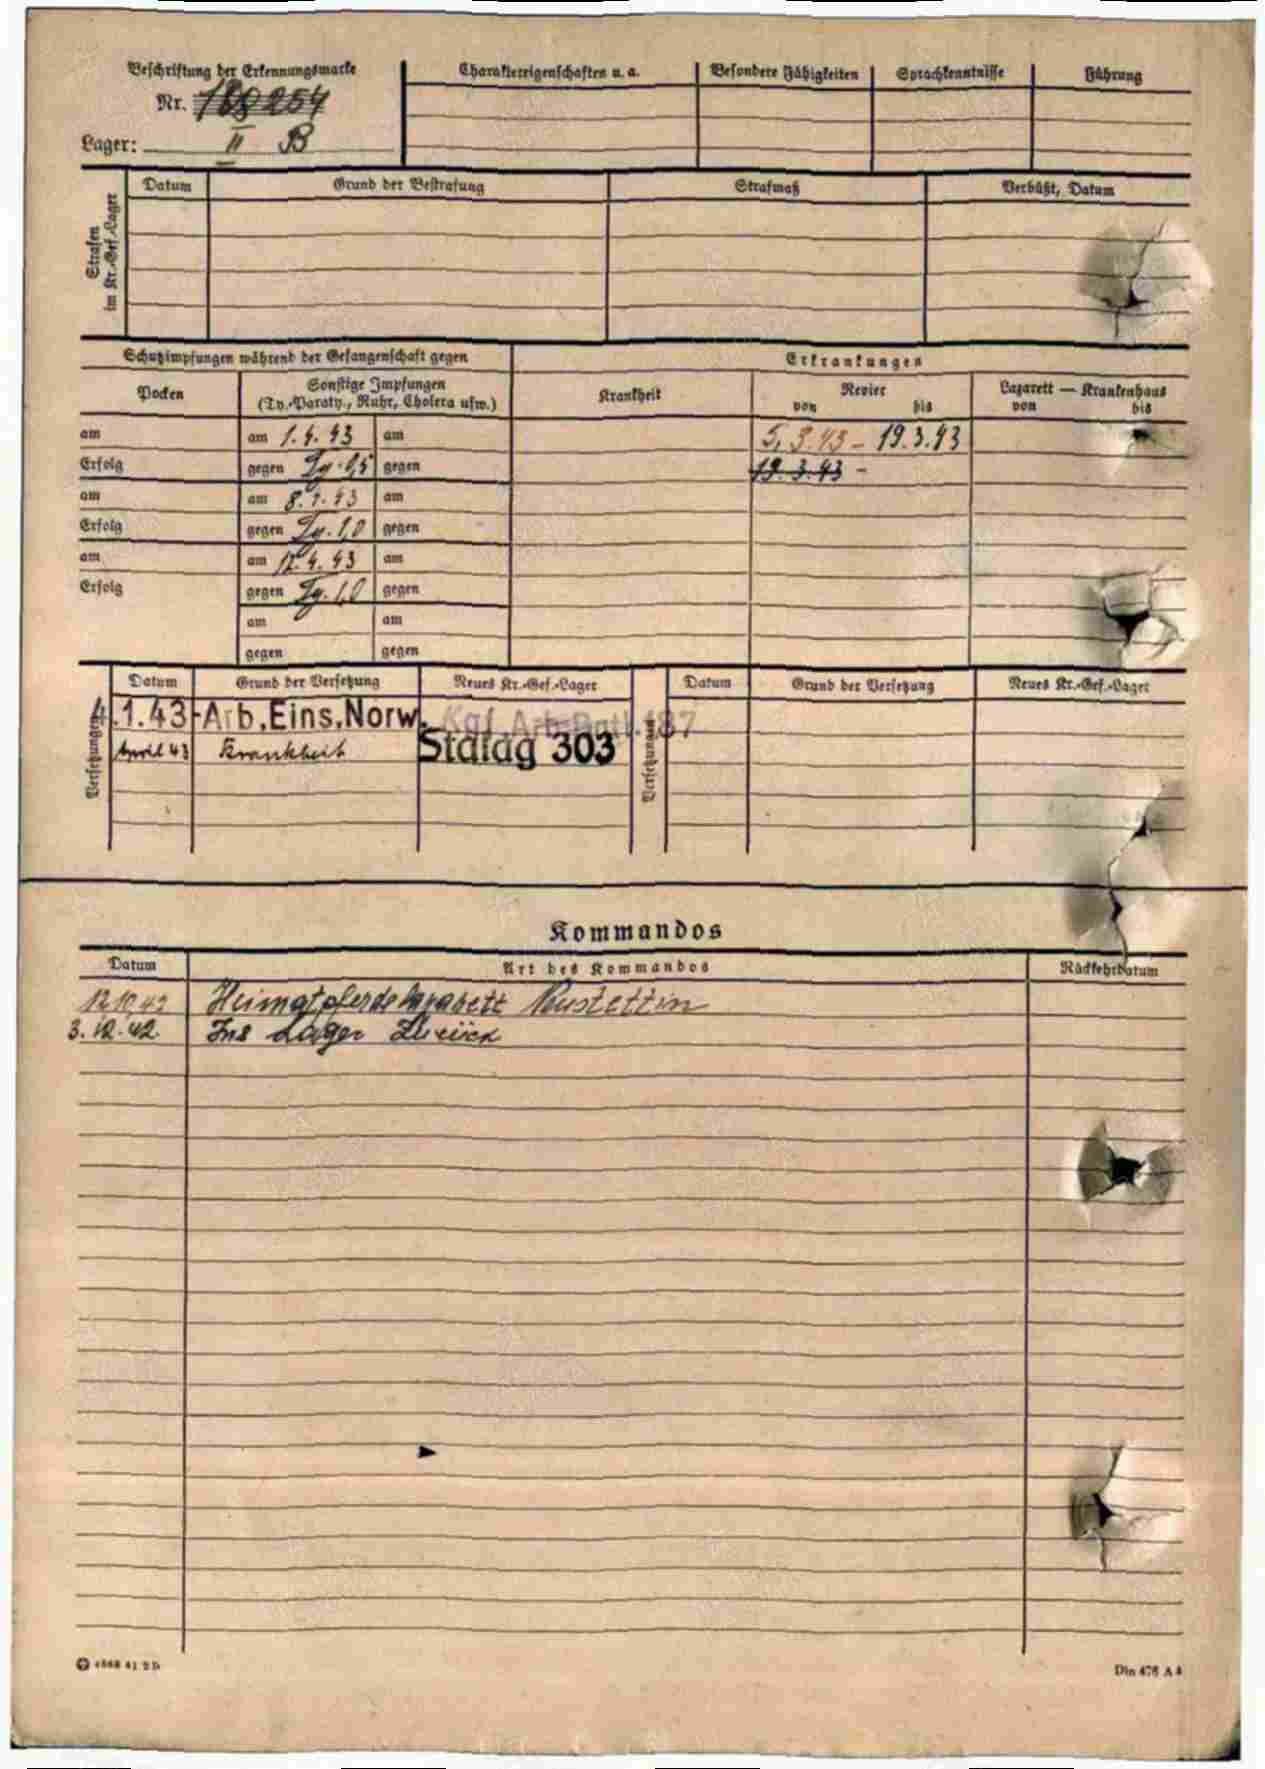 Beschriftung der Erkennungsmarke
Nr.
Lager: II B
Charaktereigenschaften u. a.
Besondere Fähigkeiten
Sprachkenntnisse
Führung
Strafen
im Kr.-Gef.-Lager
Datum
Grund der Bestrafung
Strafmaß
Verbüßt, Datum
Schutzimpfungen während der Gefangenschaft gegen
Erkrankungen
Pocken
Sonstige Impfungen
(Ty.-Paraty., Ruhr, Cholera usw.)
Krankheit
Revier
von bis
Lazarett — Krankenhaus
von bis
am
am 1.4.43 am
5.3.43 - 19.3.43
Erfolg
gegen Ty. 0,5 gegen
19.3.43 -
am
am 8.4.43 am
Erfolg
gegen Ty. 1,0 gegen
am
am 12.4.43 am
Erfolg
gegen Ty. 1,0 gegen
am am
gegen gegen
Versetzungen
Datum
Grund der Versetzung
Neues Kr.-Gef.-Lager
4.1.43-Arb.Eins.Norw. Kgf.Arb.Batl.187
April 43 Krankheit Stalag 303
Versetzungen
Datum
Grund der Versetzung
Neues Kr.-Gef.-Lager
Kommandos
Datum
Art des Kommandos
Rückkehrdatum
12.10.42 Heimatpferdelazarett Neustettin
3.12.42. Ins Lager Zurück
Din 476 A 4